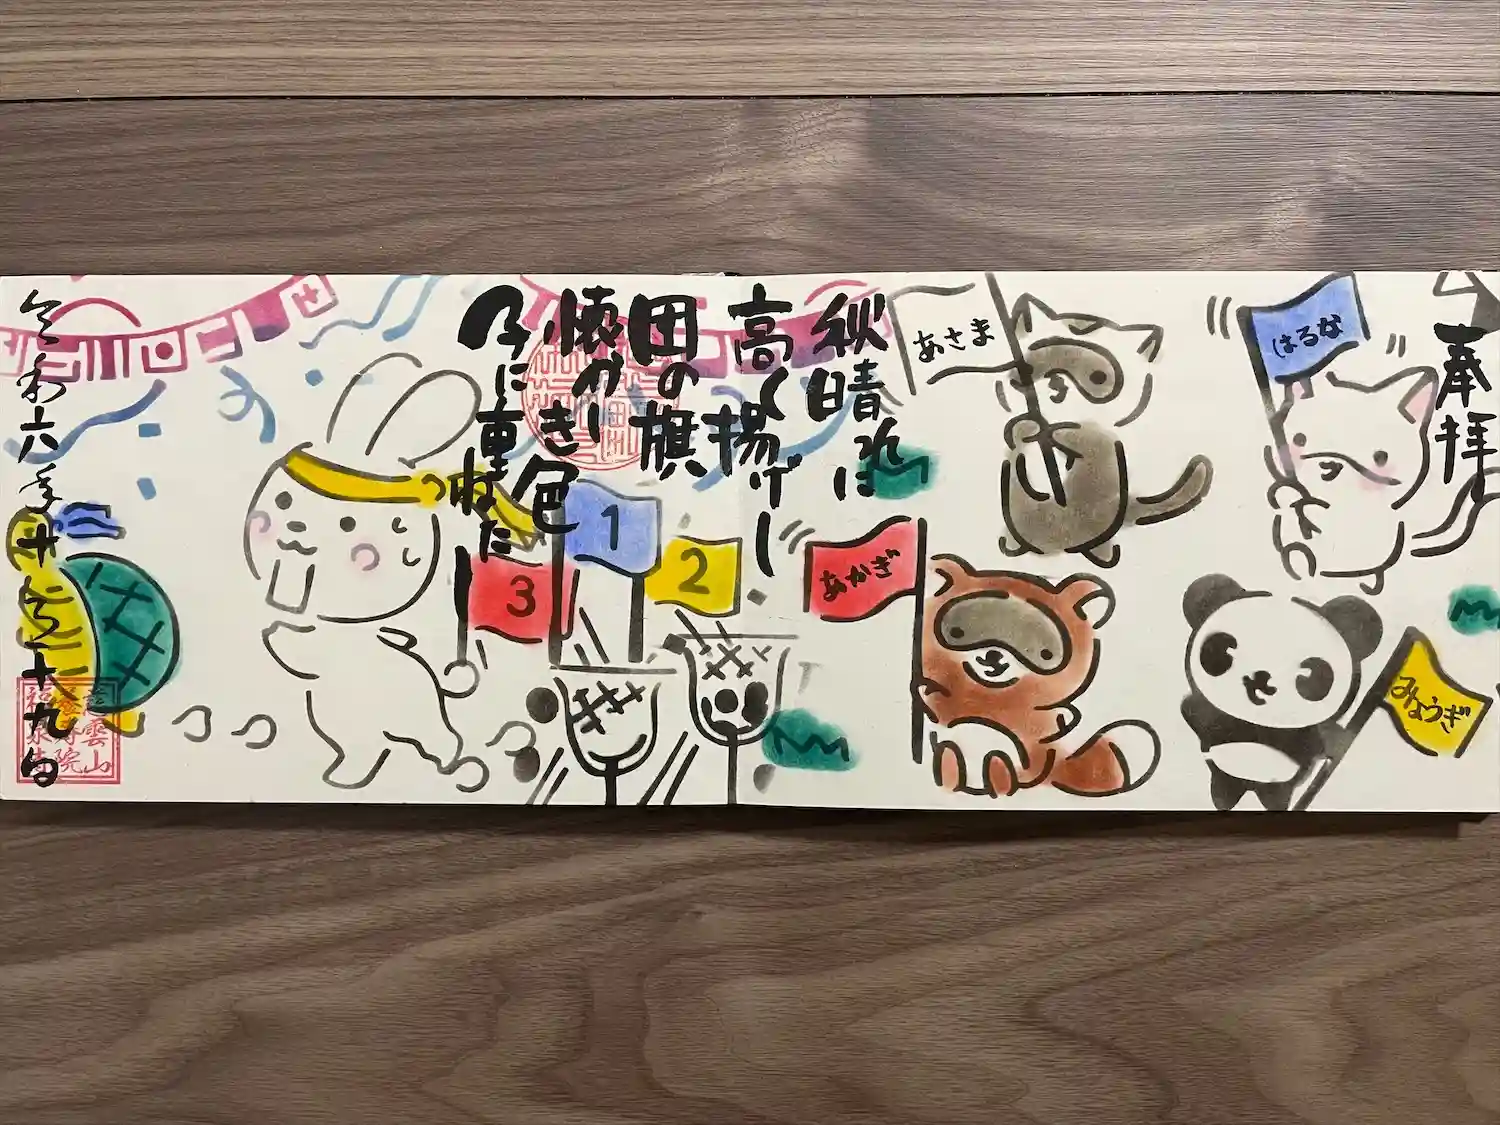 奉拝
はるな
あさま
みょうぎ
あかぎ
秋晴れに
高く揚げし
団の旗
懐かしき色
子に重ねた
1
2
3
令和六年十月十九日